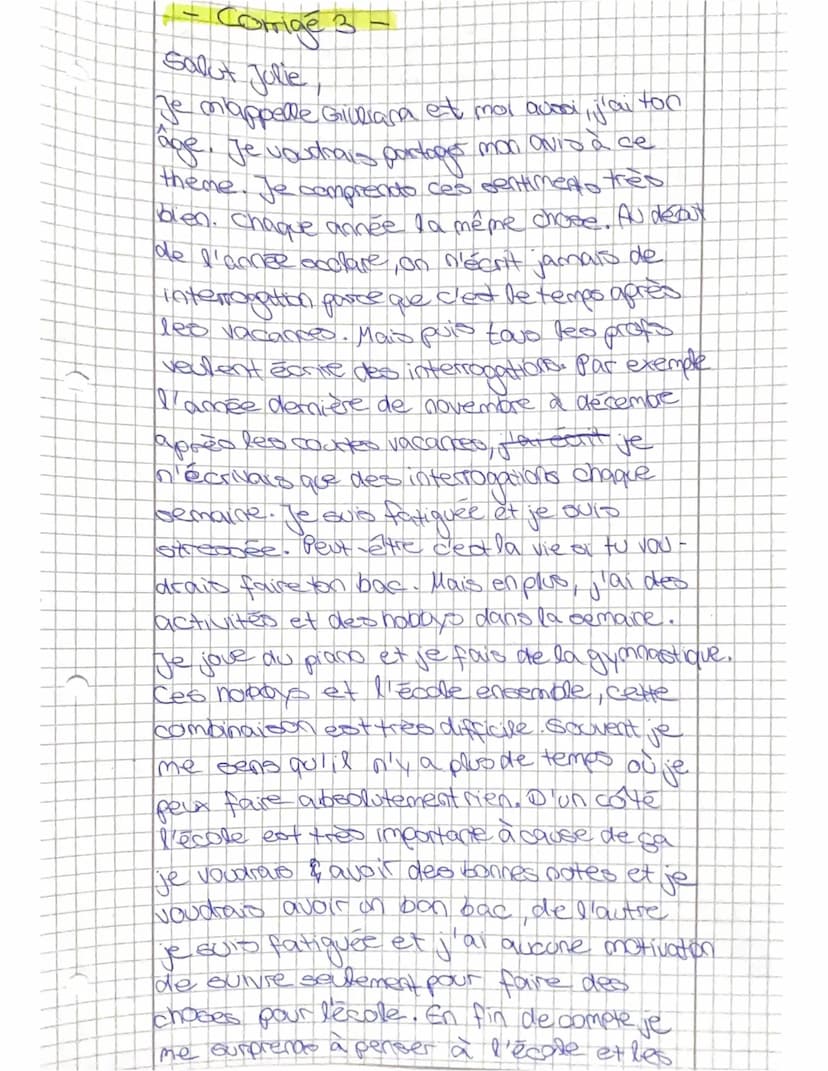 - Corrigé 3 -
Salut Jolie,
Je m'appelle Giuliana et moi aussi, j'ai ton
âge. Je voudrais partager mon avis à ce
thème. Je comprends ces sentiments très
bien. Chaque année la même chose. Au début
de l'année scolaire, on n'écrit jamais de
interrogation parce que c'est le temps après
les vacances. Mais puis tous les profs
veulent écrire des interrogations. Par exemple
l'année dernière de novembre à décembre
après les courtes vacances, j'ai écrit je
n'écrivais que des interrogations chaque
semaine. Je suis fatiguée et je suis
stressée. Peut-être c'est la vie si tu vou-
drais faire ton bac. Mais en plus, j'ai des
activités et des hobbys dans la semaine.
Je joue du piano et je fais de la gymnastique.
Ces hobbys et l'école ensemble, cette
combinaison est très difficile. Souvent je
me sens qu'il n'y a plus de temps où je
peux faire absolutement rien. D'un côté
l'école est très importante à cause de ça
je voudrais avoir des bonnes notes et je
voudrais avoir un bon bac, de l'autre
je suis fatiguée et j'ai aucune motivation
de suivre seulement pour faire des
choses pour l'école. En fin de compte je
me surprends à penser à l'école et les